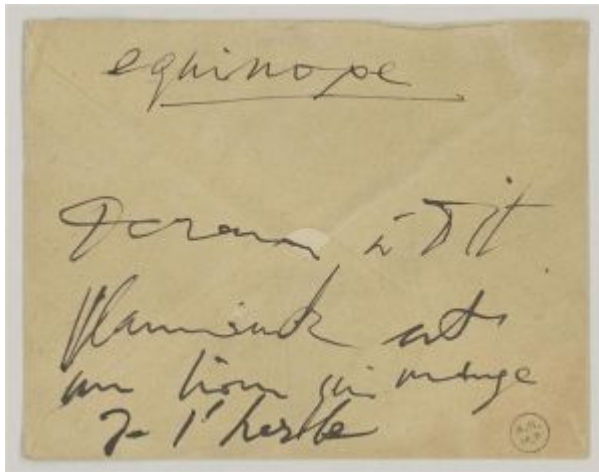 equinoxe
Derain a dit
Vlaminck est
un lion qui mange
de l'herbe